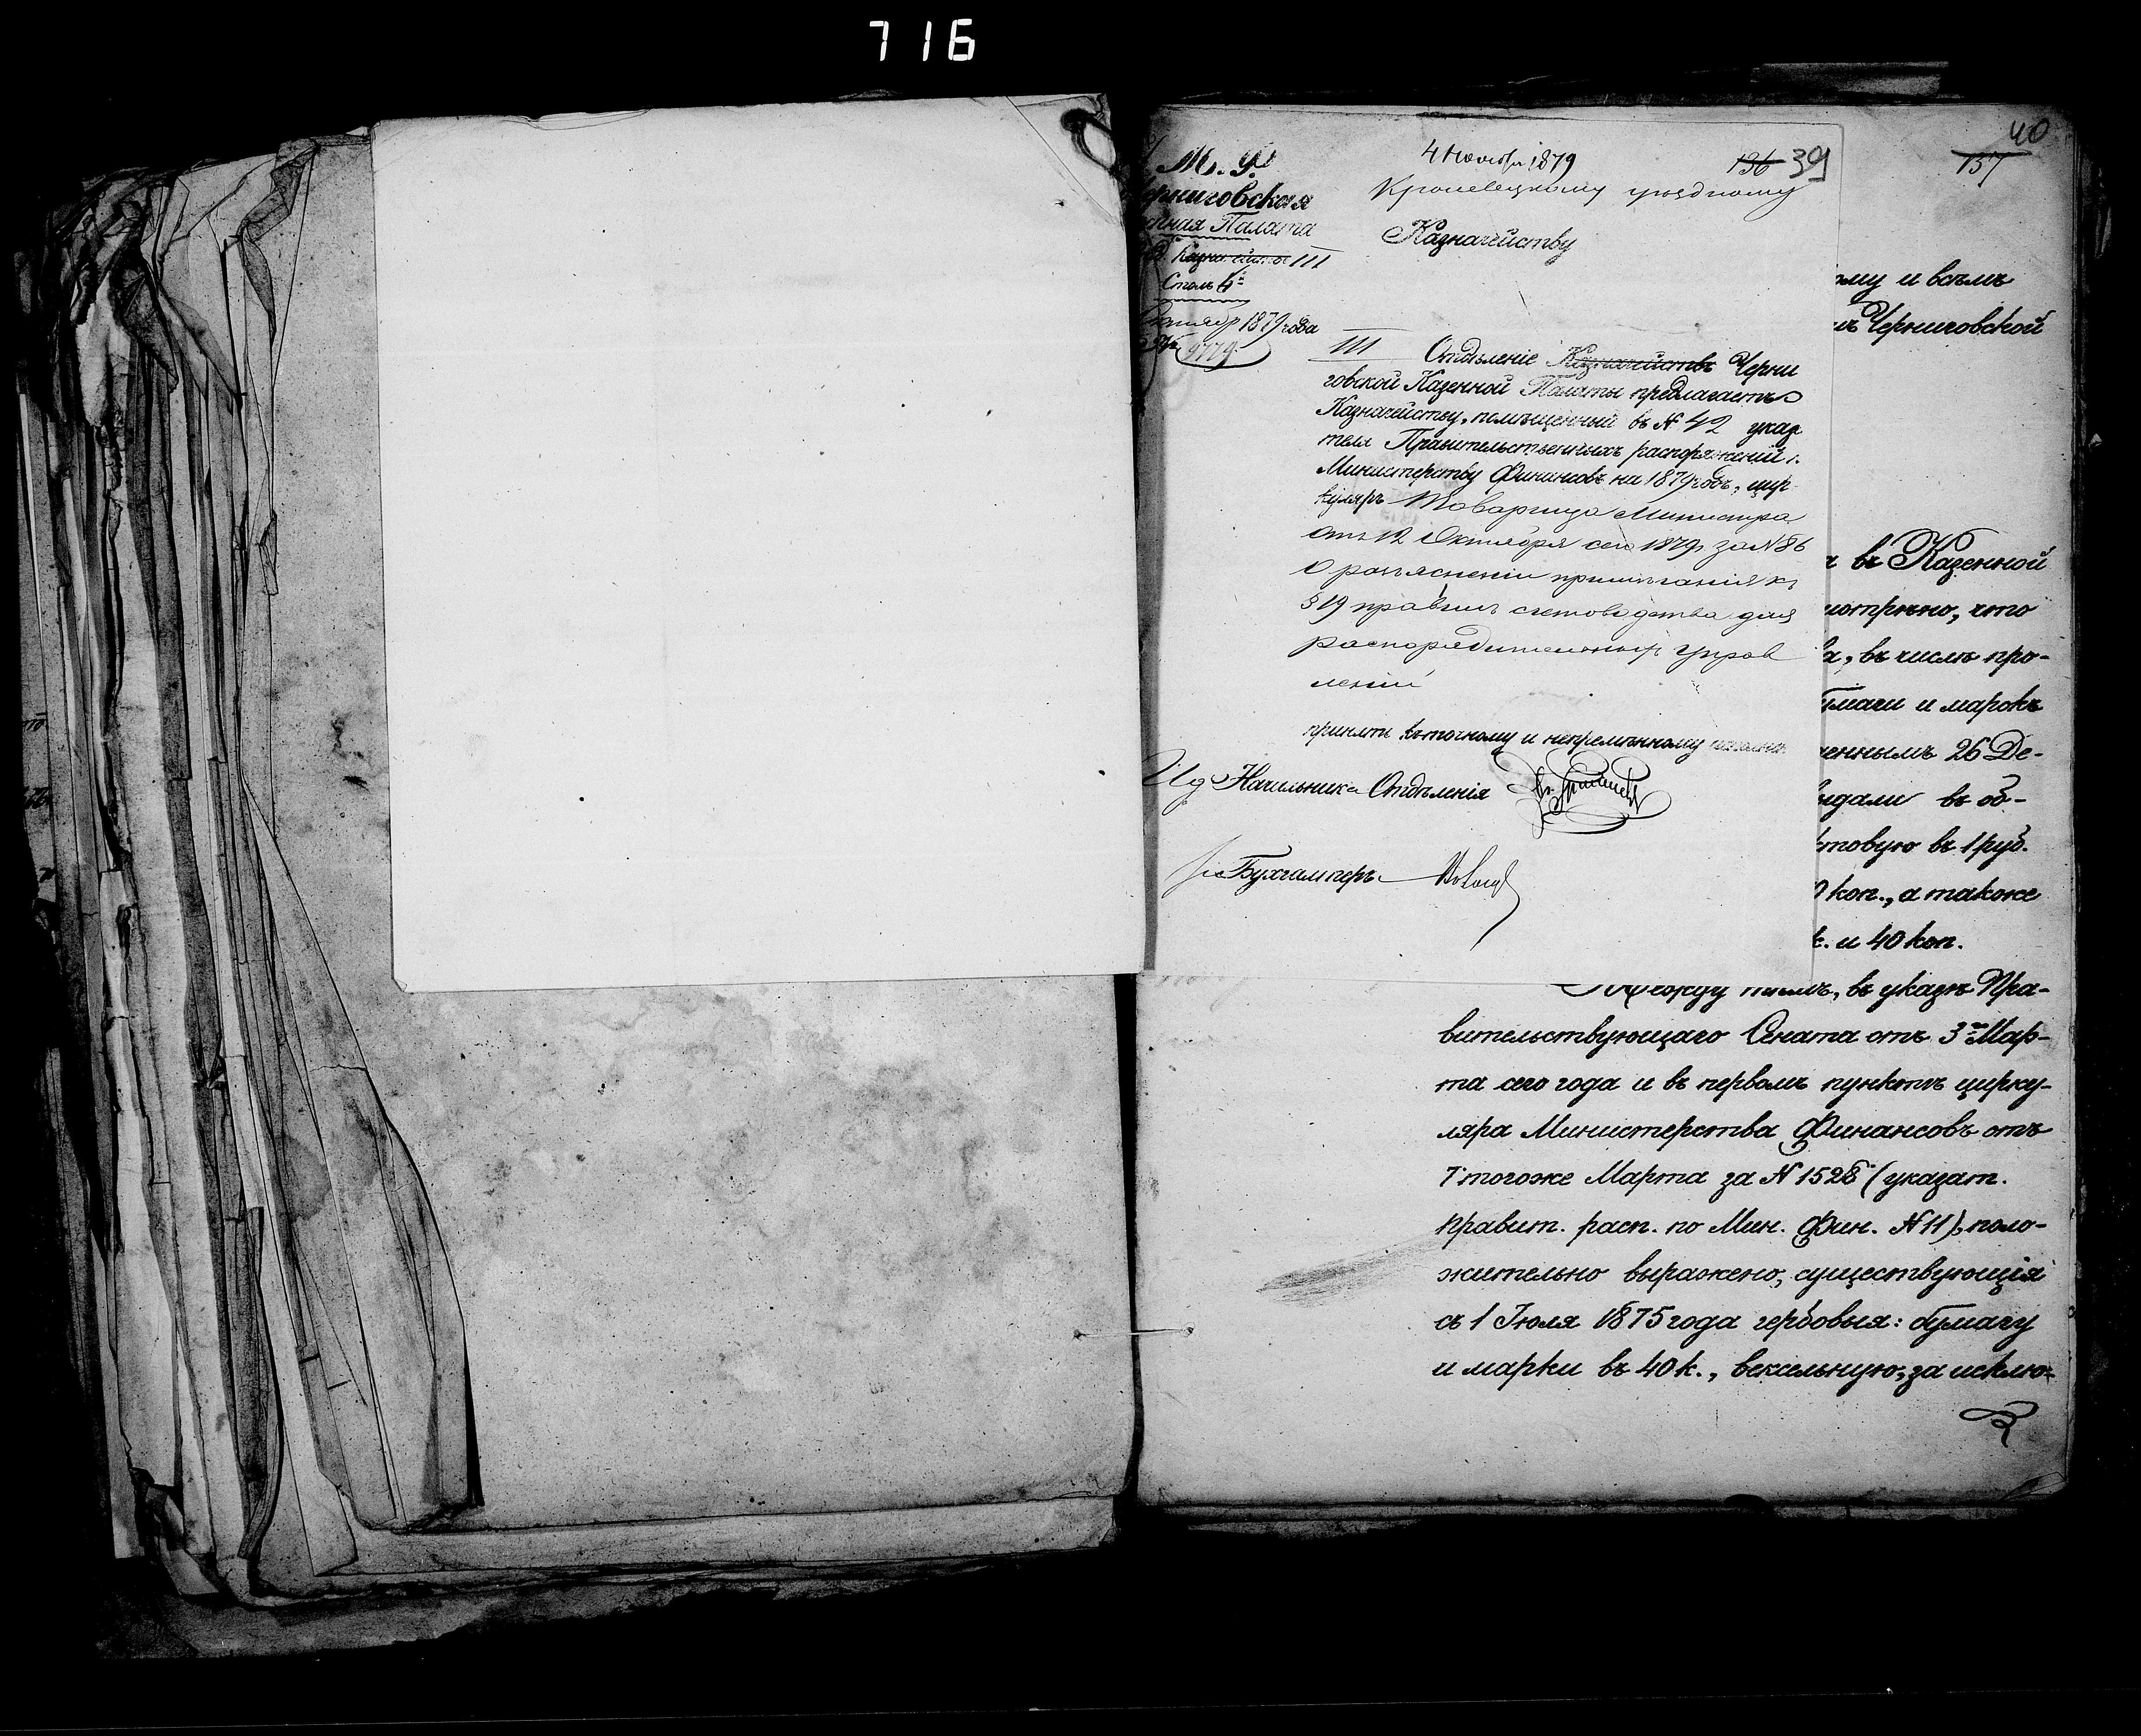 716
М. Ф.
Черниговская
Казенная Палата
Отд. Казначейств III
Столъ 4й
Октября 1879 года
№ 9779
4 Ноября 1879
136 39
Кролевецкому уѣздному
Казначейству
III Отдѣленіе Казначействъ Черни
говской Казенной Палаты предлагаетъ
Казначейству, помѣщенный въ № 42 указа
теля Правительственныхъ распоряженій п.
Министерству Финансовъ на 1879 годъ, цир
куляръ Товарища Министра
отъ 12 Октября сего 1879 г. за № 86
о разъясненіи примѣчанія къ
§ 19 правилъ счетоводства для
распорядительныхъ управ
леній
принять къ точному и непремѣнному исполнен
И д Начальника Отдѣленія
за Бухгалтеръ
40
137
ому и всѣмъ
мъ Черниговской
въ Казенной
мотрѣно, что
ва, въ числѣ про-
бумаги и марокъ
ченнымъ 26 Де-
выдали въ об-
ктовую въ 1 руб.
0 коп., а также
к. и 40 коп.
Между тѣмъ, въ указѣ Пра-
вительствующаго Сената отъ 3го Мар-
та сего года и въ первомъ пунктѣ цирку-
ляра Министерства Финансовъ отъ
7 того же Марта за № 1528 (указат.
правит. расп. по Мин. Фин. № 11), поло-
жительно выражено, существующія
съ 1 Іюля 1875 года гербовыя: бумагу
и марки въ 40 к., вексельную, за исклю-